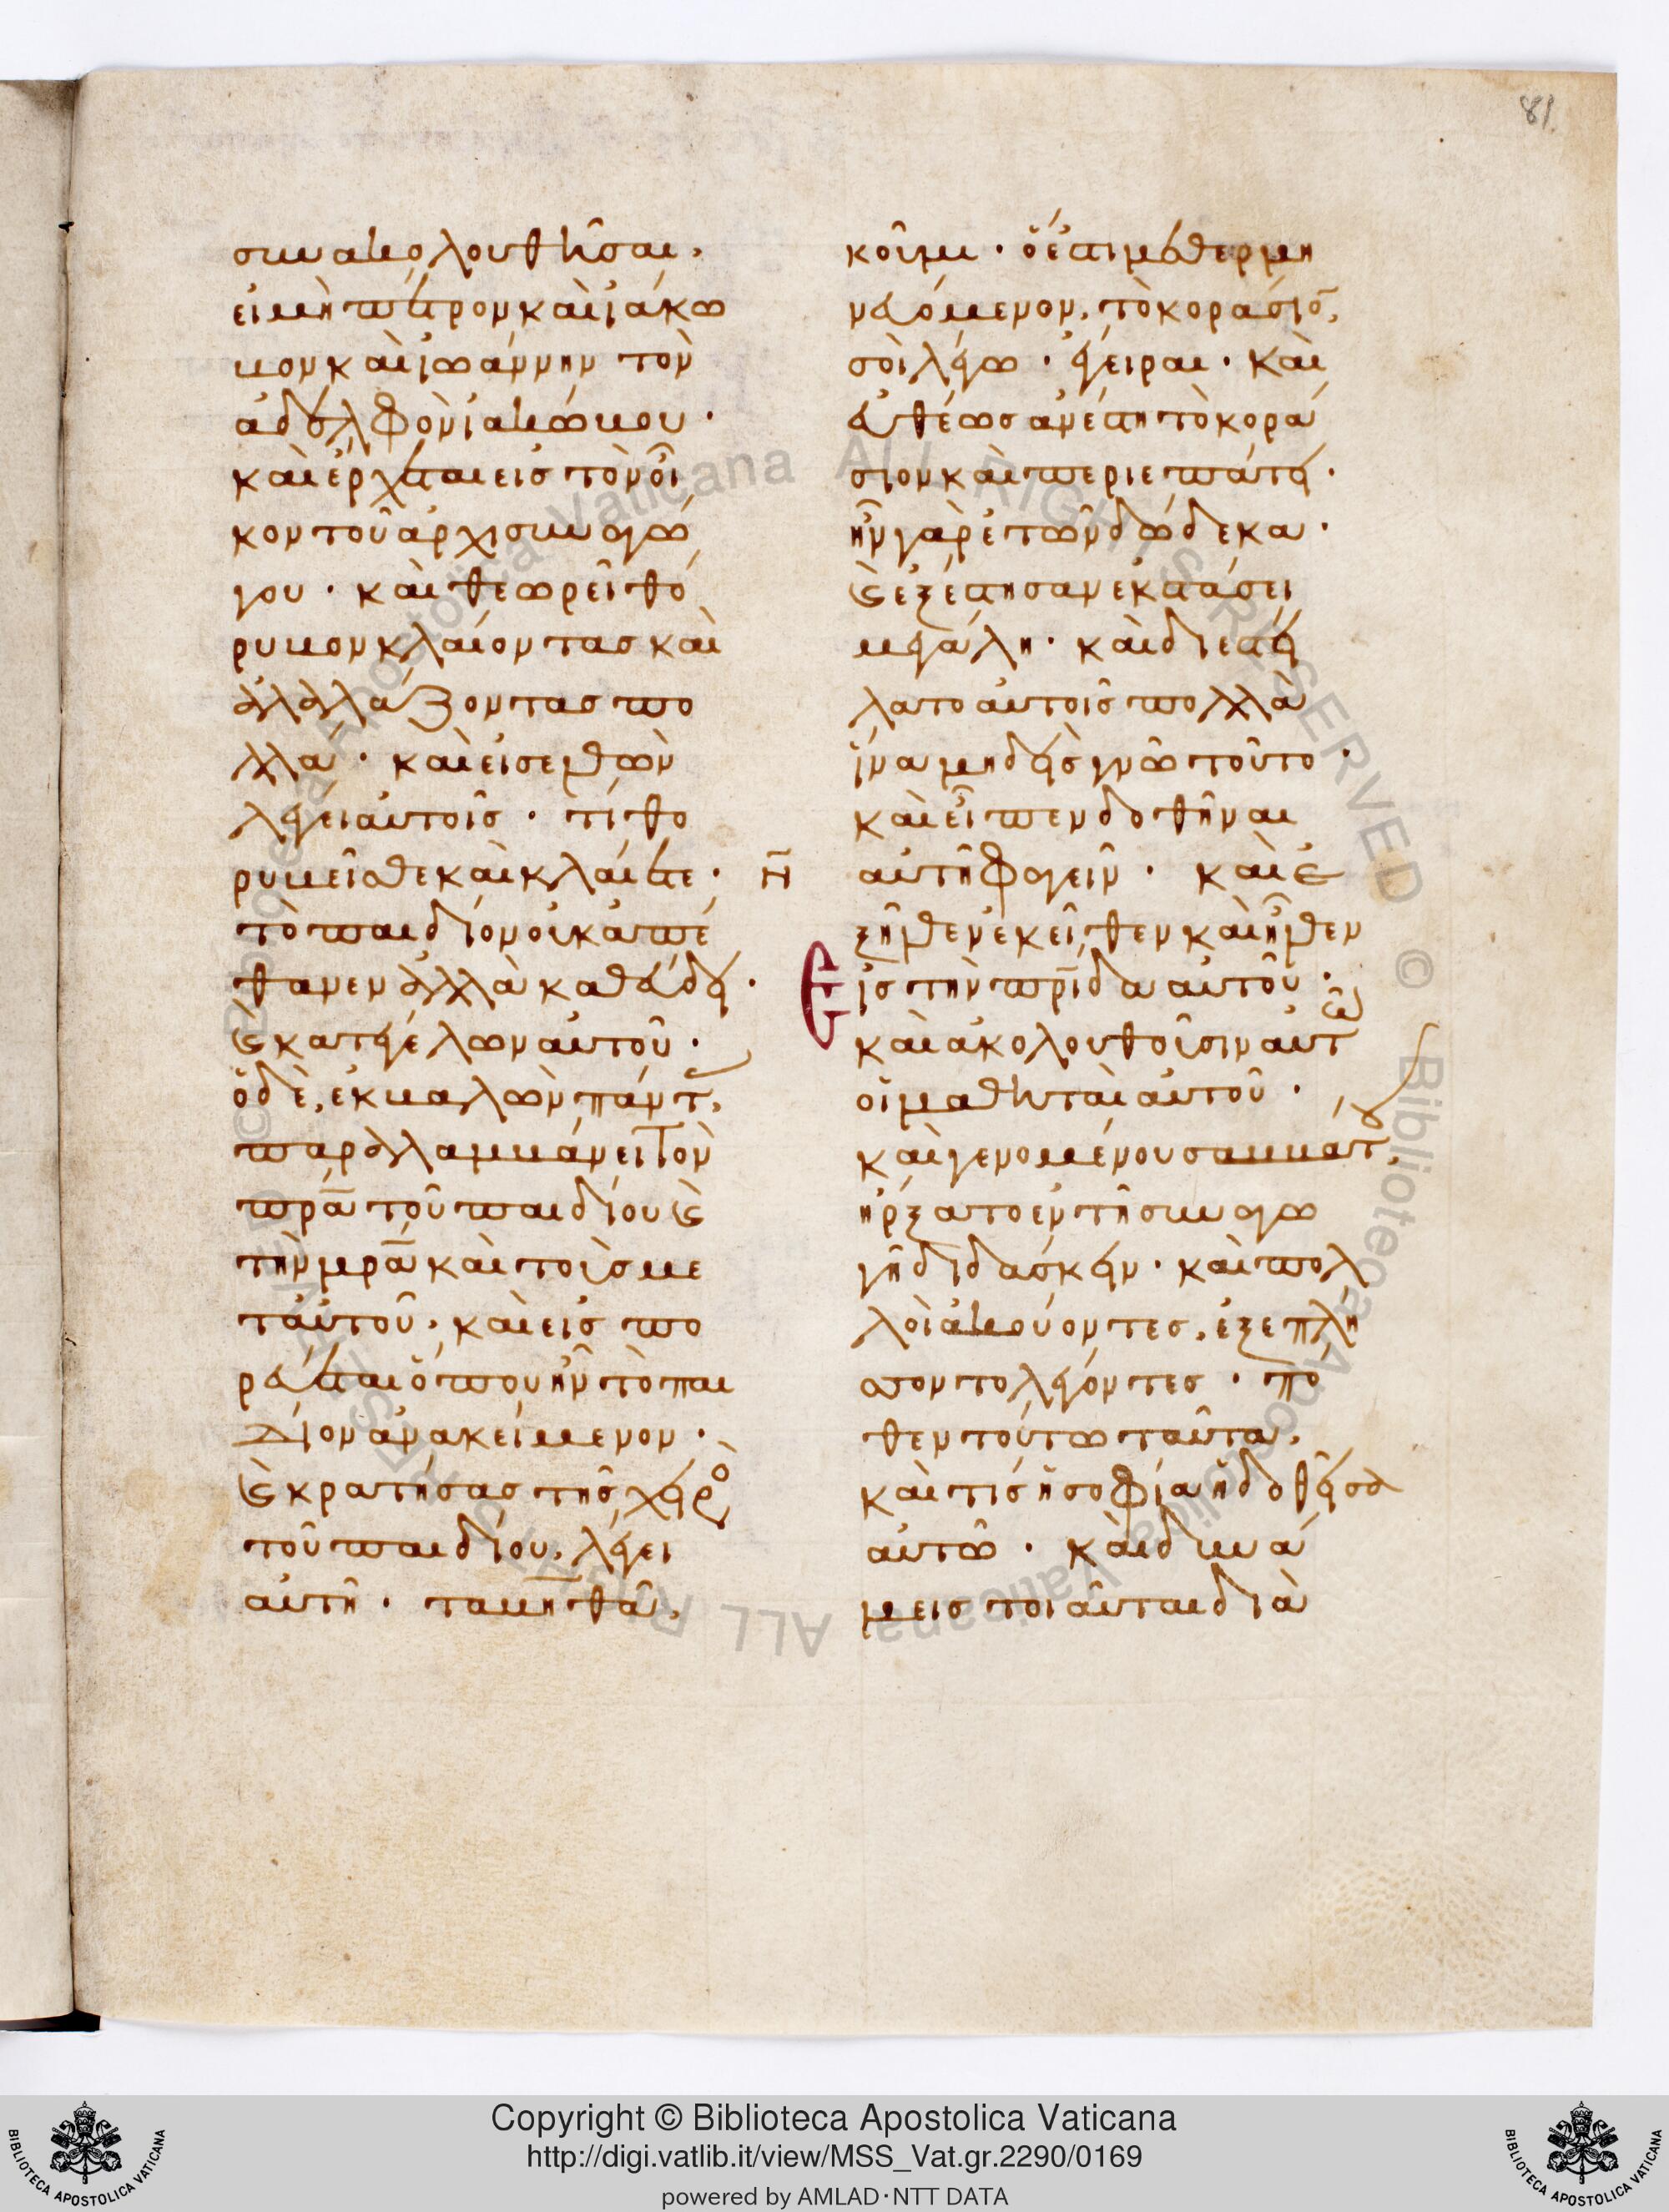 81
συνακολουθῆσαι,
εἰ μὴ πέτρον καὶ ἰάκω
βον καὶ ἰωάννην τὸν
ἀδελφὸν ἰακώβου ·
καὶ ἔρχεται εἰς τὸν οἶ
κον τοῦ ἀρχισυναγώ
γου · καὶ θεωρεῖ θό
ρυβον κλαίοντας καὶ
ἀλαλάζοντας πο
λλά · καὶ εἰσελθὼν
λέγει αὐτοῖς · τί θο
ρυβεῖσθε καὶ κλαίετε ·
τὸ παιδίον οὐκ ἀπέ
θανεν ἀλλὰ καθεύδει ·
ϗ κατεγέλων αὐτοῦ ·
ὁ δὲ, ἐκβαλὼν πάντ,
παραλαμβάνει τὸν
πρ̅α τοῦ παιδίου ϗ
τὴν μρ̅α καὶ τοὺς με
τ αὐτοῦ, καὶ εἰσπο
ρεύεται ὅπου ἦν τὸ παι
δίον ἀνακείμενον ·
ϗ κρατήσας τῆς χειρο
τοῦ παιδίου, λέγει
αὐτῇ · ταβηθὰ,
κοῦμι · ὅ ἐστι μεθερμη
νευόμενον, τὸ κοράσιο̅,
σοὶ λέγω · ἔγειραι · καὶ
εὐθέως ἀνέστη τὸ κορά
σιον καὶ περιεπάτει ·
ἦν γὰρ ἐτῶν δώδεκα ·
ϗ ἐξέστησαν ἐκστάσει
μεγάλῃ · καὶ διεστεί
λατο αὐτοῖς πολλὰ
ἵνα μηδεὶς γνῶ τοῦτο ·
καὶ εἶπεν δοθῆναι
αὐτῇ φαγεῖν · καὶ ἐ
ξῆλθεν ἐκεῖθεν καὶ ἦλθεν
Εἰς τὴν πρ̅ίδα αὐτοῦ ·
καὶ ἀκολουθοῦσιν αὐτῶ
οἱ μαθηταὶ αὐτοῦ ·
καὶ γενομένου σαββάτ,
ἤρξατο ἐν τῇ συναγω
γῇ διδάσκειν · καὶ πολ
λοὶ ἀκούοντες, ἐξεπλή
σσοντο λέγοντες · πό
θεν τούτω ταῦτα,
καὶ τίς ἡ σοφία ἡ δοθεῖσα
αὐτῶ · καὶ δυνά
μεις τοιαῦται διὰ
Copyright © Biblioteca Apostolica Vaticana
http://digi.vatlib.it/view/MSS_Vat.gr.2290/0169
powered by AMLAD·NTT DATA
BIBLIOTECA APOSTOLICA VATICANA
BIBLIOTECA APOSTOLICA VATICANA